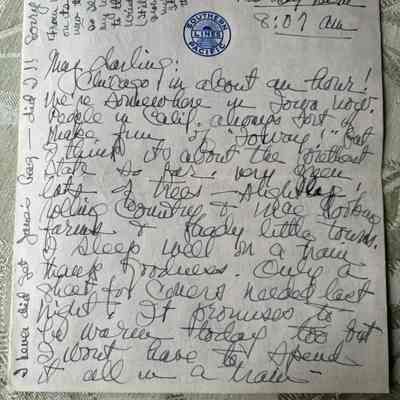 8:07 am
SOUTHERN
LINES
PACIFIC
My darling:
Chicago in about an hour!
We're somewhere in Iowa now.
People in Calif. always sort of
make fun of "Ioway!" but
I think it's about the prettiest
state so far. Very green,
lots of trees — slightly
rolling country & nice looking
farms & shady little towns.
I sleep well on a train
thank goodness. Only a
sheet for covers needed last
night! It promises to
be warm today too but
I won't have to spend
it all in a train —
I never did get Jane's — did I!! Sorry